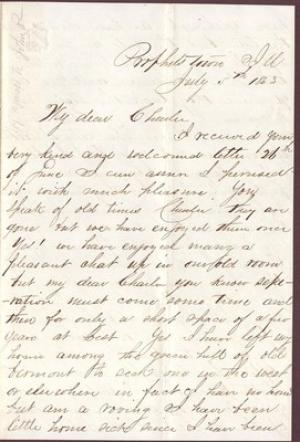 Prophetstown Ill
July 5th 1863
My dear Charlie
I received your
very kind and welcomed letter 26th
of June I perused
it with much pleasure You
speak of old times Charlie they are
gone but we have enjoyed them once
Yes! we have enjoyed many a
pleasant chat up in our old room
but my dear Charlie you know sepe-
ration must come some time and
then for only a short space of a few
years at best Yes I have left my
home among the green hill of old
Vermont to seek one in the west
or elsewhere in fact I have no home
but am a roving I have been
little home sick since I have been